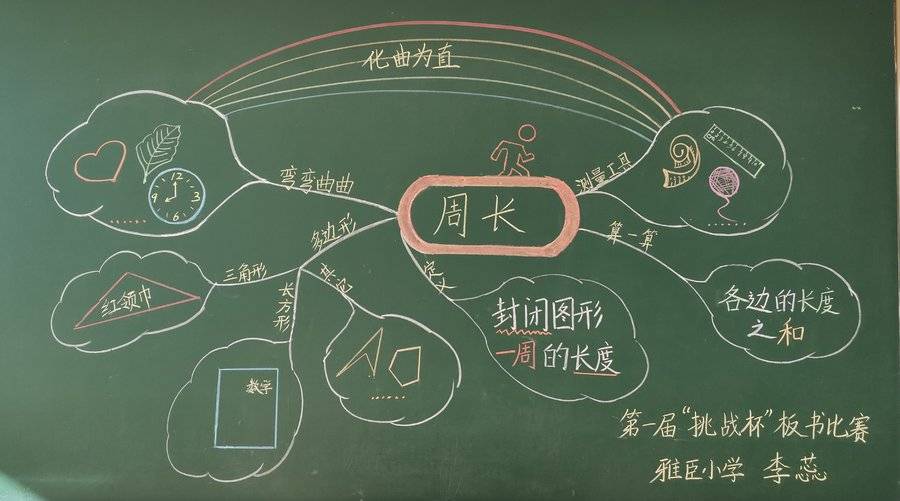 化曲为直
12
9 3
6
......
弯弯曲曲
周长
测量工具
......
多边形
三角形
红领巾
长方形
数学
其它
......
定义
封闭图形
一周的长度
第一算
各边的长度
之和
第一届“挑战杯”板书比赛
雅臣小学 李蕊